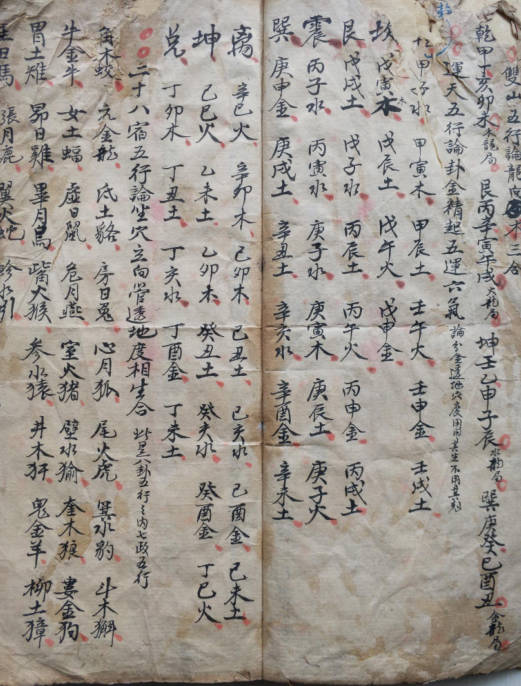 雙山五行論龍向 木 三合
乾甲丁亥卯未木龍局 艮丙辛寅午戌火龍局 坤壬乙申子辰水龍局 巽庚癸巳酉丑金龍局
運天五行論卦金精起五運六氣
甲子水 甲寅木 甲辰土 壬午火 壬申金 壬戌土
坎 戊寅木 戊辰土 戊午火 戊申金
艮 戊戌土 戊子水 丙辰土 丙午火 丙申金 丙戌土
震 丙子水 丙寅水 庚子水 庚寅木 庚辰土 庚子火
巽 庚申金 庚戌土 辛丑土 辛亥水 辛酉金 辛未土
离 辛巳火 辛卯木 己卯木 己丑土 己亥水 己酉金 己未土
坤 乙巳火 乙未土 乙卯木 癸丑土 癸亥水 癸酉金 丁巳火
兌 丁卯木 丁丑土 丁亥水 丁酉金 丁未土
二十八宿五行論坐穴立向管透地度相生合 此星卦五行之内七政五行
角木蛟 亢金龍 氐土貉 房日兔 心月狐 尾火虎 箕水豹 斗木獬
牛金牛 女土蝠 虛日鼠 危月燕 室火猪 壁水㺄 奎木狼 婁金狗
胃土雉 昴日雞 畢月烏 觜火猴 参水猿 井木犴 鬼金羊 柳土獐
日馬 張月鹿 翼火蛇 軫水引